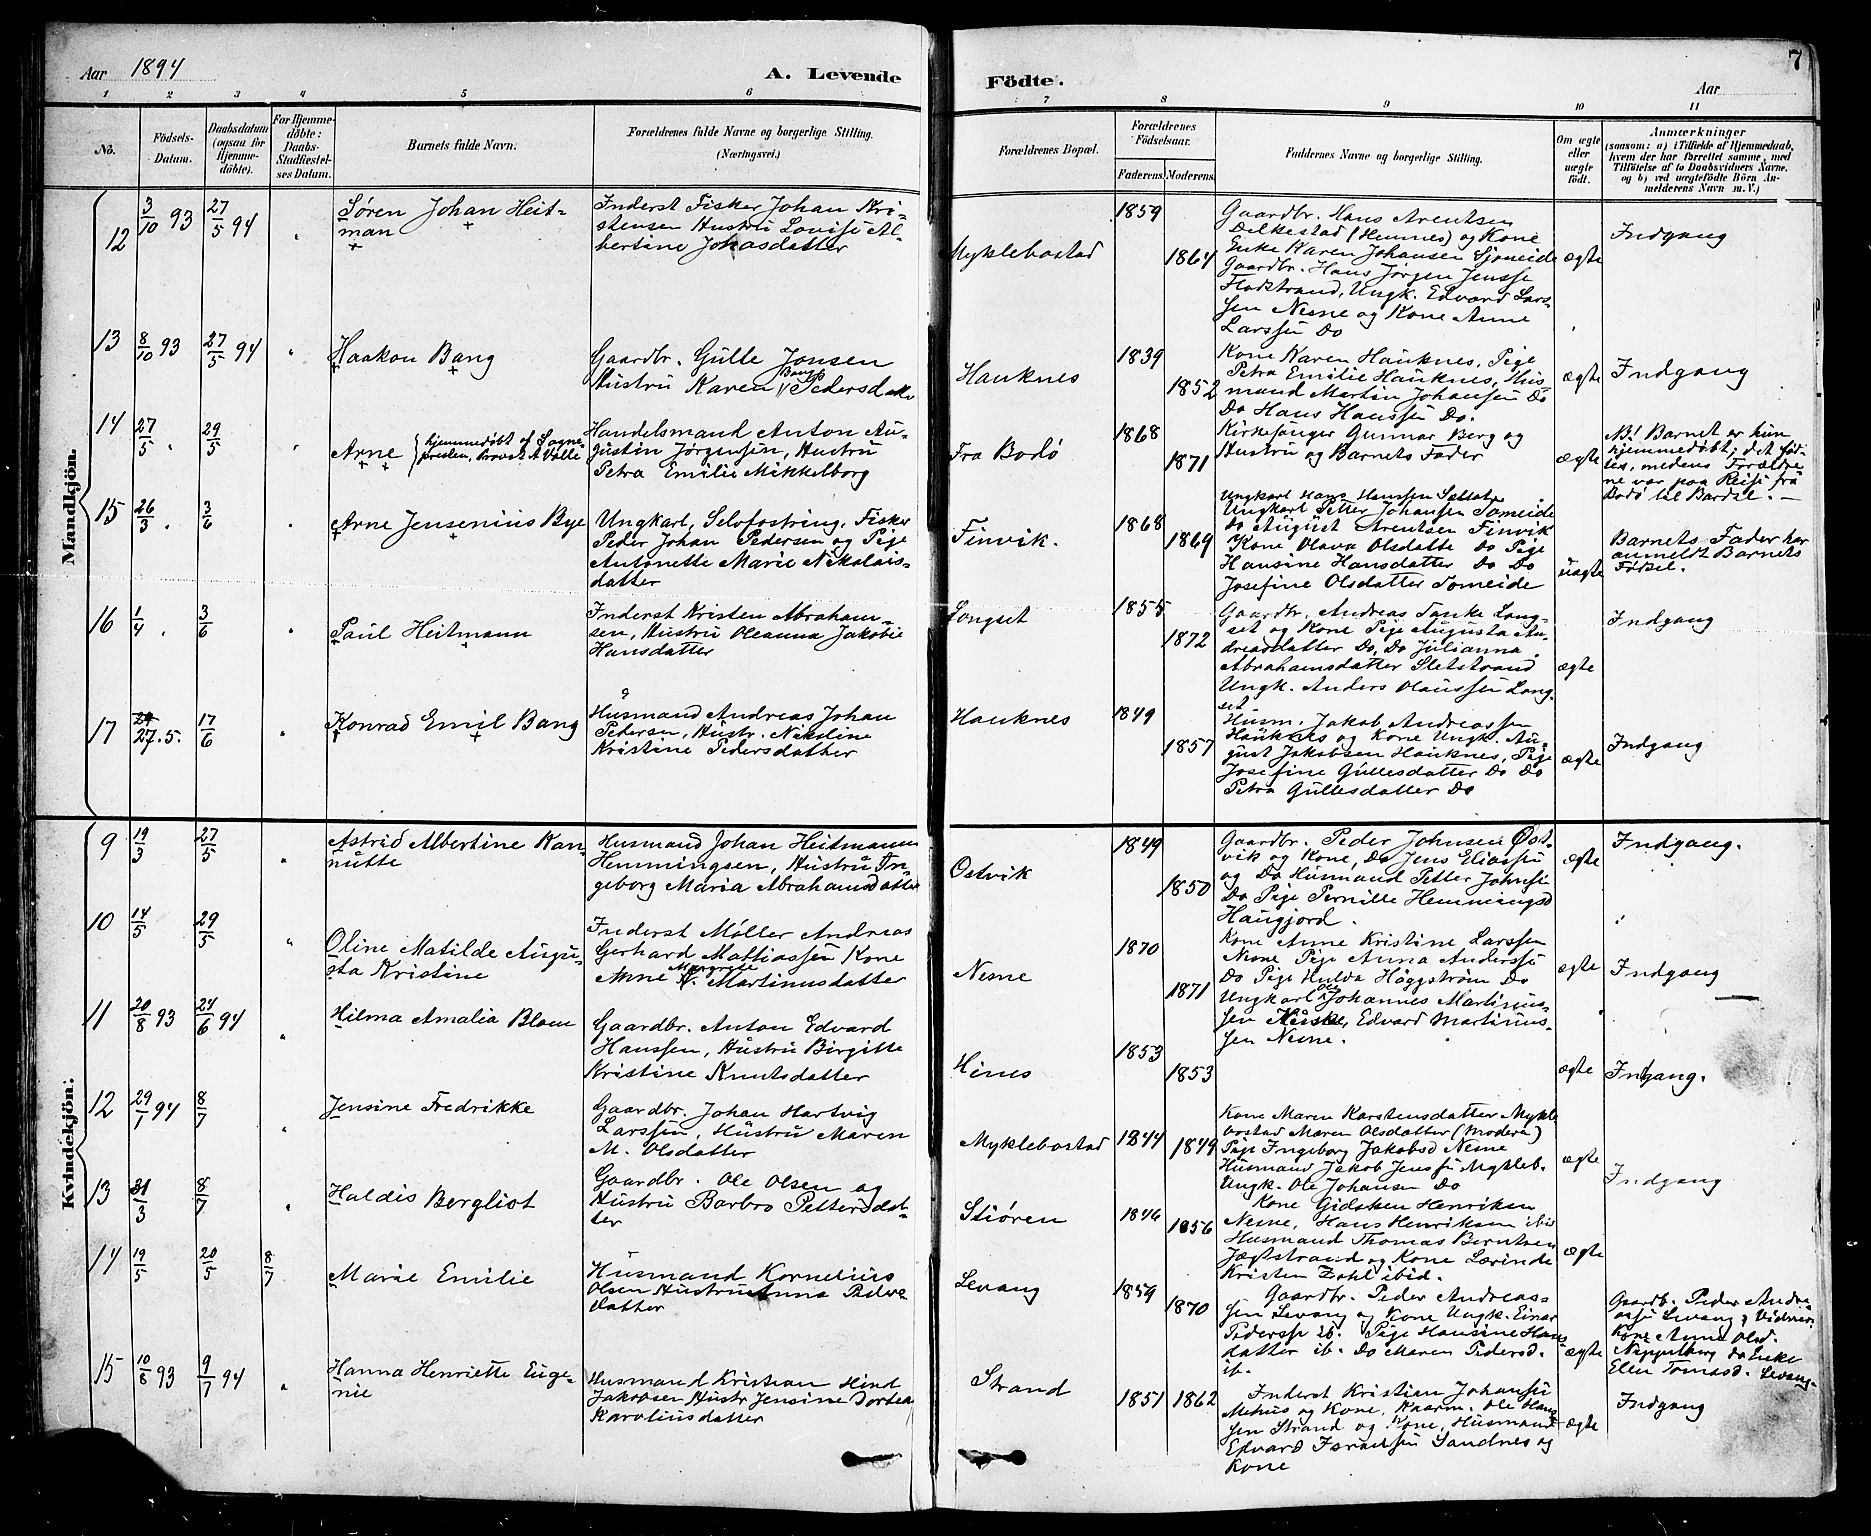 Aar 1894
A. Levende Födte.
7
Aar
1 2 3 4 5 6 7 8 9 10 11
No.
Födsels-
Datum.
Daabsdatum
(ogsaa for
Hjemme-
döbte).
For Hjemme-
döbte:
Daabs-
Stadfæstel-
ses Datum.
Barnets fulde Navn.
Forældrenes fulde Navne og borgerlige Stilling.
(Næringsvei.)
Forældrenes Bopæl.
Forældrenes
Födselsaar.
Faderens. Moderens.
Faddernes Navne og borgerlige Stilling.
Om ægte
eller
uægte
födt.
Anmærkninger
(saasom: a) i Tilfælde af Hjemmedaab,
hvem der har forrettet samme, med
Tilföielse af to Daabsvidners Navne,
og b) ved uægtefödte Börn An-
melderens Navn m. V.)
Mandkjön.
12 3/10 93 27/5 94 "
Søren Johan Heit-
man
Inderst Fisker Johan Kri-
stensen Hustru Lovise Al-
bertine Johasdatter
Myklebostad
1859
1864
Gaardbr. Hans Arentsen
Dilkestad (Hemnes) og Kone
Enke Karen Johansen Sjomeide
Gaardbr. Hans Jørgen Jensse
Flodstrand, Ungk. Edvard Lars-
sen Nesne og Kone Anne
Larssen Do
ægte
Indgang
13 8/10 93 27/5 94 "
Haakon Bang
Gaardbr. Gulle Jonsen
Hustru Karen Bangs Pedersdatter
Hauknes
1839
1852
Kone Karen Hauknes, Pige
Petra Emilie Hauknes, Hus-
mand Martin Johansen Do
Do Hans Hanssen Do.
ægte
Indgang
14 27/5 " 29/5 "
Arne { hjemmedøbt af Sogne-
presten, Provst A Valle
Handelsmand Anton Au-
gustin Jörgensen, Hustru
Petra Emilie Mikkelborg
Fra Bodø
1868
1871
Kirkesanger Gunnar Berg og
Hustru og Barnets Fader
ægte
N! Barnet er kun
hjemmedøbt; det fød-
tes, medens Forældre-
ne var paa Reise fra
Bodø til Bardal. —
15 26/3 " 3/6 "
Arne Jensenius Bye
Ungkarl, Selvfostring, Fisker
Peder Johan Pedersen og Pige
Antonette Marie Nikolais-
datter
Finvik.
1868
1869
Ungkarl Hans Hanssen
Ungkarl Petter Johansen Someide
Do August Arentsen Finvik
Kone Olava Olsdatte Do Pige
Hansine Hansdatter Do Do
Josefine Olsdatter Someide
uægte
Barnets Fader har
anmeldt Barnets
Fødsel.
16 1/4 " 3/6 "
Paul Heitmann
Inderst Kristen Abraham-
sen, Hustru Oleanna Jakobie
Hansdatter
Longset
1855
1872
Gaardbr. Andreas Tanke Lang-
set og Kone Pige Augusta An-
dreasdatter Do, Do Julianna
Abrahamsdatter Sletstrand
Ungk. Anders Olaussen Lang-
set
ægte
Indgang
17 27.5. 17/6 "
Konrad Emil Bang
Husmand Andreas Johan
Pedersen, Hustr. Nikoline
Kristine Pedersdatter
Hauknes
1849
1857
Husm. Jakob Andreassen
Hauknes og Kone Ungk. Au-
gust Jakobsen Hauknes, Pige
Josefine Gullesdatter Do Do
Petra Gullesdatter Do
ægte
Indgang
Kvindekjön:
9 19/3 27/5 "
Astrid Albertine Kan-
nutte
Husmand Johan Heitmann
Hemmingsen, Hustru In-
geborg Maria Abrahamsdatter
Ostvik
1849
1850
Gaardbr. Peder Johnsen Øst-
vik og Kone, Do Jens Eliassen
og Do Husmand Petter Johnse
Do Pige Pernille Hemmingsd
Haugjord.
ægte
Indgang.
10 14/5 29/5 "
Oline Matilde Augu-
sta Kristine
Inderst Møller Andreas
Gerhard Mattiassen Kone
Anne Margrete Martinusdatter
Nesne
1870
1871
Kone Anne Kristine Larssen
Nesne Pige Anna Anderssen
Do Pige Hulda Häggstrøm Do
Ungkarl Ole Johannes Martinus-
sen Nesne, Edvard Martinus-
sen Nesne.
ægte
Indgang
11 20/8 93 24/6 94 "
Hilma Amalia Blom
Gaardbr. Anton Edvard
Hanssen, Hustru Birgitte
Kristine Knutsdatter
Hines
1853
1853
ægte
Indgang.
12 29/1 94 8/7 "
Jensine Fredrikke
Gaardbr. Johan Hartvig
Larssen, Hustru Maren
M. Olsdatter
Myklebostad
1844
1849
Kone Maren Karstensdatter Mykle
bostad Maren Olsdatter (Moderen)
Pige Ingeborg Jakobsd Nesne
Husmand Jakob Jenssen Mykleb.
Ungk. Ole Johansen Do
ægte
Indgang
13 31/3 8/7 "
Haldis Bergliot
Gaardbr. Ole Olsen og
Hustru Barbro Pettersdat-
ter
Stiøren
1846
1856
Kone Gidsken Henriksen
Nesne, Hans Henriksen ibid
Husmand Thomas Berntsen
Jægtstrand og Kone Lærinde
Kristen Zahl ibid.
ægte
14 19/5 20/5 8/7
Marie Emilie
Husmand Kornelius
Olsen Hustru Anna Peders-
datter
Levang
1859
1870
Gaardbr. Peder Andreas-
sen Levang og Kone Ungk. Einar
Pederssen ib. Pige Hansine Hans
datter ib. Do Maren Pedersd.
ib.
ægte
Gaardb. Peder Andre-
assen Levang, Vidner:
Kone Anne Olsd.
Do Enke
Ellen Tomasd. Levang.
15 10/8 93 9/7 94 "
Hanna Henriette Euge-
nie
Husmand Kristian Hind
Jakobsen Hustr Jensine Dortea
Karoliusdatter
Strand
1851 1862
Inderst Kristian Johansen
Mehus og Kone, Kaarm. Ole Hans
sen Strand og Kone, Husmand
Edvard Israelsen Sandnes og
Kone
ægte
Indgang